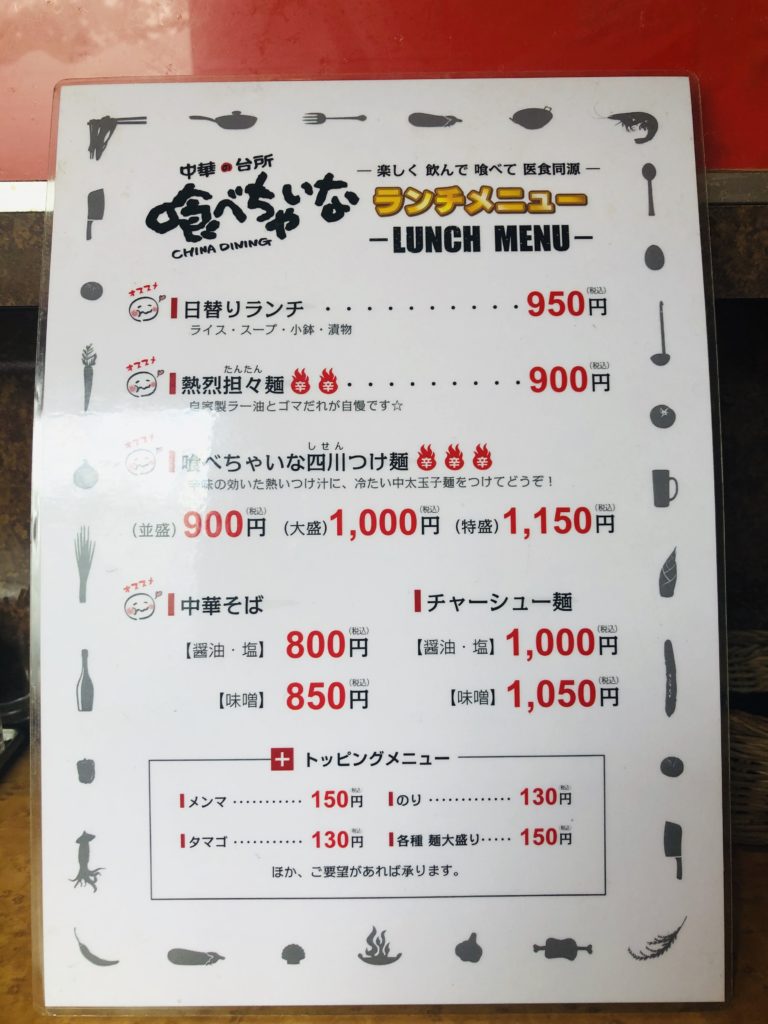 中華の台所
喰べちゃいな
CHINA DINING
― 楽しく 飲んで 喰べて 医食同源 ―
ランチメニュー
－LUNCH MENU－
オススメ
日替りランチ ・・・・・・・・・・ 950円(税込)
ライス・スープ・小鉢・漬物
オススメ
熱烈担々麺 辛 辛 ・・・・・・・・・ 900円(税込)
たんたん
自家製ラー油とゴマだれが自慢です☆
オススメ
喰べちゃいな四川つけ麺 辛 辛 辛
しせん
辛味の効いた熱いつけ汁に、冷たい中太玉子麺をつけてどうぞ！
(並盛) 900円(税込) (大盛) 1,000円(税込) (特盛) 1,150円(税込)
オススメ
中華そば
【醤油・塩】 800円(税込)
【味噌】 850円(税込)
チャーシュー麺
【醤油・塩】 1,000円(税込)
【味噌】 1,050円(税込)
＋ トッピングメニュー
メンマ ・・・・・・・・・・・ 150円(税込)
のり ・・・・・・・・・・・・・ 130円(税込)
タマゴ ・・・・・・・・・・・ 130円(税込)
各種 麺大盛り・・・・・ 150円(税込)
ほか、ご要望があれば承ります。